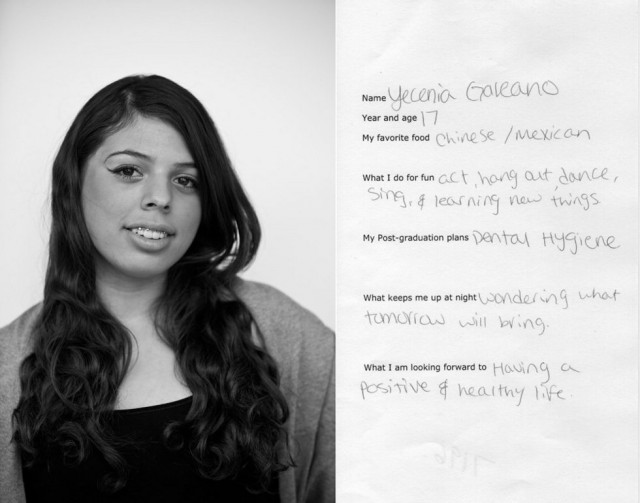 Name Yecenia Galeano
Year and age 17
My favorite food Chinese / Mexican
What I do for fun act, hang out, dance,
sing, & learning new things
My Post-graduation plans Dental Hygiene
What keeps me up at night wondering what
tomorrow will bring.
What I am looking forward to Having a
positive & healthy life.